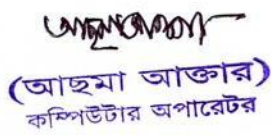 (আছমা আক্তার)
কম্পিউটার অপারেটর